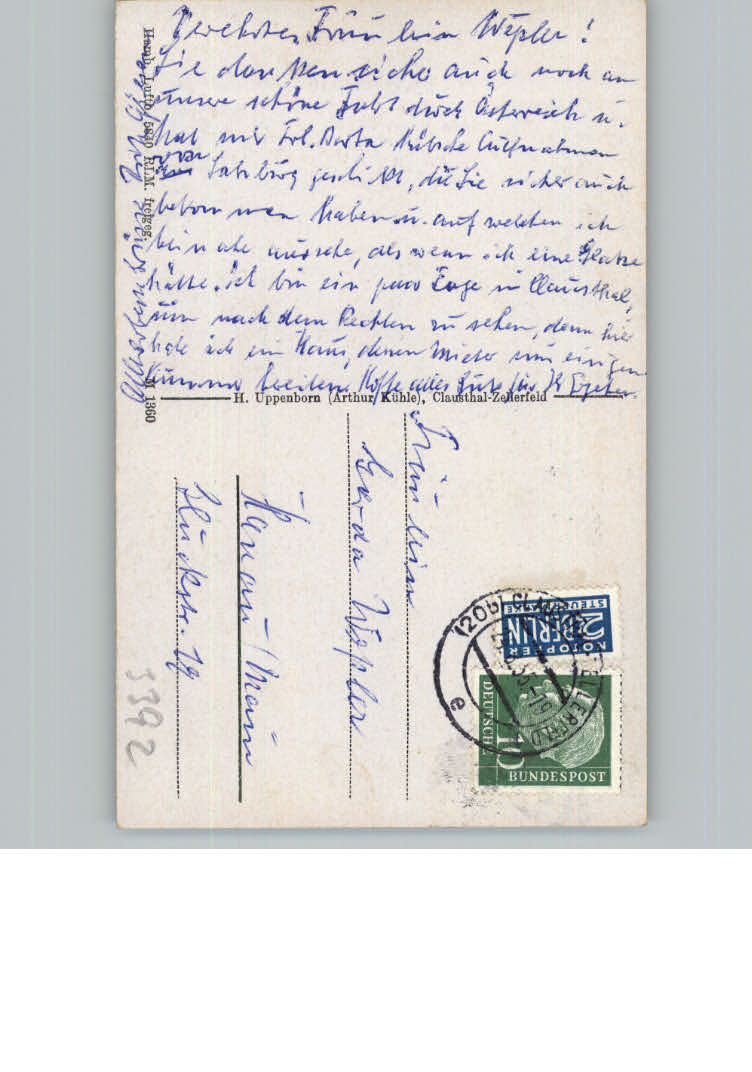 Fräulein Wepler!
Sie denken sicher auch noch an
unsere schöne Fahrt durch Österreich u.
hat mir Frl. Berta hübsche Aufnahmen
von Salzburg geschickt, die Sie sicher auch
bekommen haben u. auf welchen ich
beinahe aussehe, als wenn ich eine Glatze
hätte. Ich bin ein paar Tage in Clausthal,
um nach dem Rechten zu sehen, denn hier
habe ich ein Haus, dessen Mieter mir einigen
Kummer bereiten. Hoffe alles Gute für
Hamb. Luftb. 5840 RLM. freigeg.
M 1360
H. Uppenborn (Arthur Kühle), Clausthal-Zellerfeld
Fräulein
Gerda Wepler
Hanau/Main
Glückstr. 19
3392
NOTOPFER
2 BERLIN
STEUERMARKE
10
DEUTSCHE
BUNDESPOST
(20b) CLAUSTHAL-ZELLERFELD
e